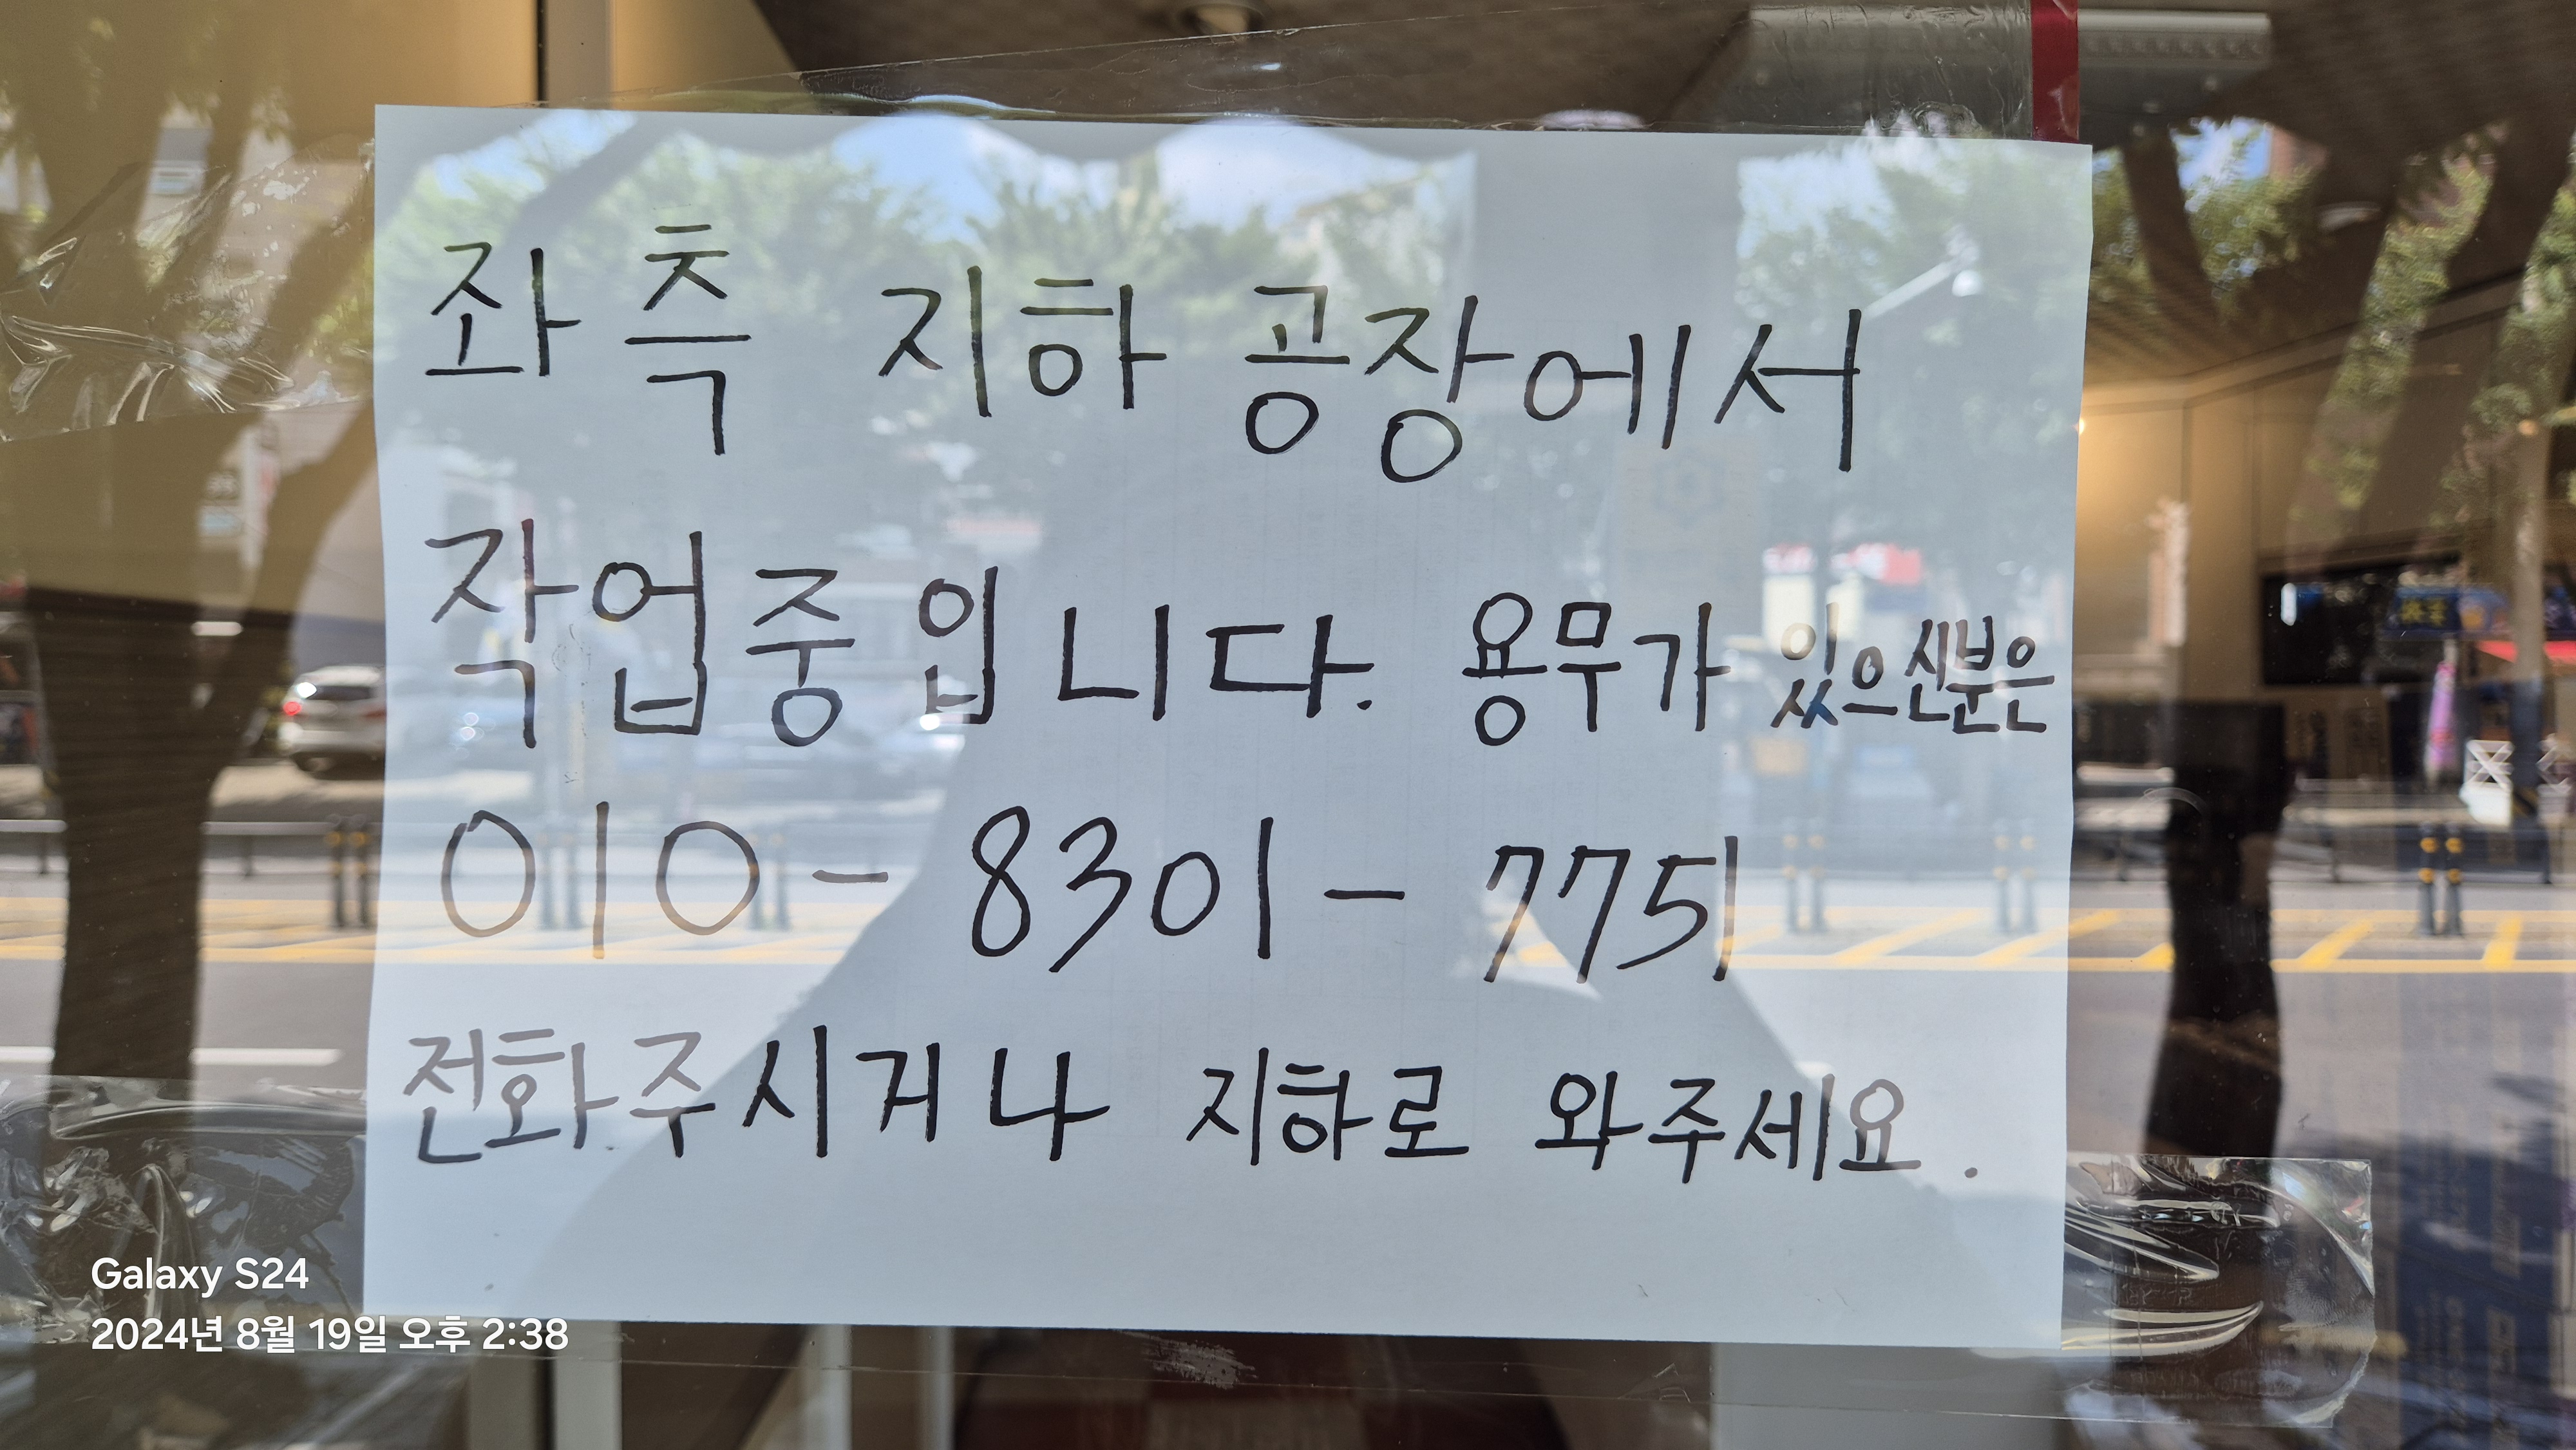 좌측 지하 공장에서
작업중입니다. 용무가 있으신분은
010 - 8301 - 7751
전화주시거나 지하로 와주세요.
Galaxy S24
2024년 8월 19일 오후 2:38